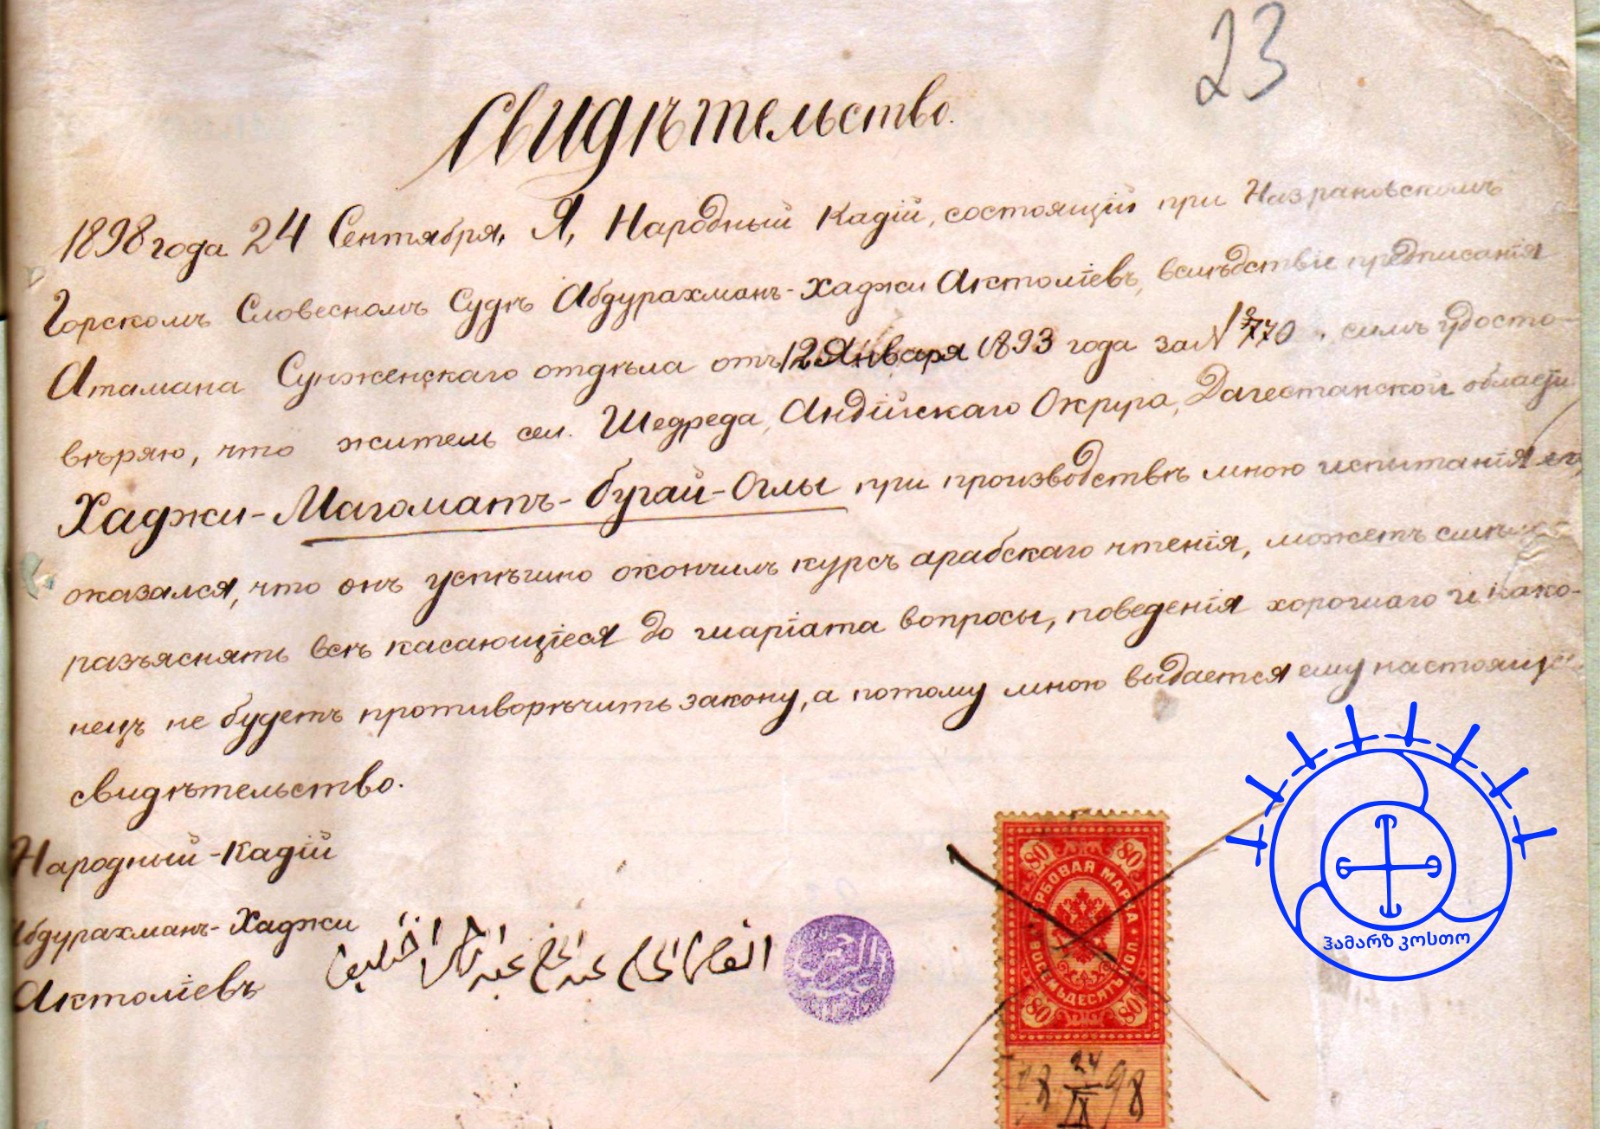 23
Свидѣтельство.
1898 года 24 Сентября, Я, Народный Кадій, состоящій при Назрановскомъ
Горскомъ Словесномъ Судѣ Абдурахманъ-Хаджи Актоліевъ, вслѣдствіе предписанія
Атамана Сунженскаго отдѣла отъ 12 Января 1893 года за № 770, симъ удосто-
вѣряю, что житель сел. Шедреда, Андійскаго Округа, Дагестанской области
Хаджи-Магоматъ-Бугай-Оглы при производствѣ мною испытанія его,
оказался, что онъ успѣшно окончилъ курсъ арабскаго чтенія, можетъ смѣло
разъяснять всѣ касающіеся до шаріата вопросы, поведенія хорошаго и нако-
нецъ не будетъ противорѣчить закону, а потому мною выдается ему настоящее
свидѣтельство.
Народный-Кадій
Абдурахманъ-Хаджи
Актоліевъ
80 80
ГЕРБОВАЯ МАРКА
ВОСЕМЬДЕСЯТЪ КОП.
80 80
18 24/IX 98
ჰამარზ კოსთო